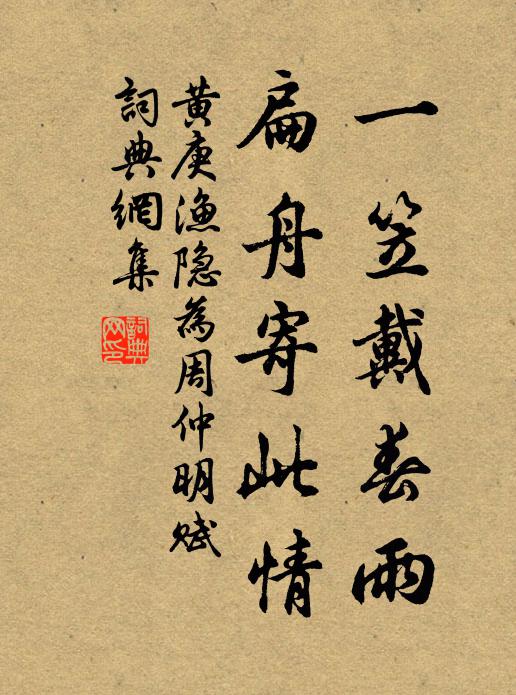 一笠戴春雨
扁舟寄此情
黄庚渔隐為周仲明赋
詞典網集
詞典网印